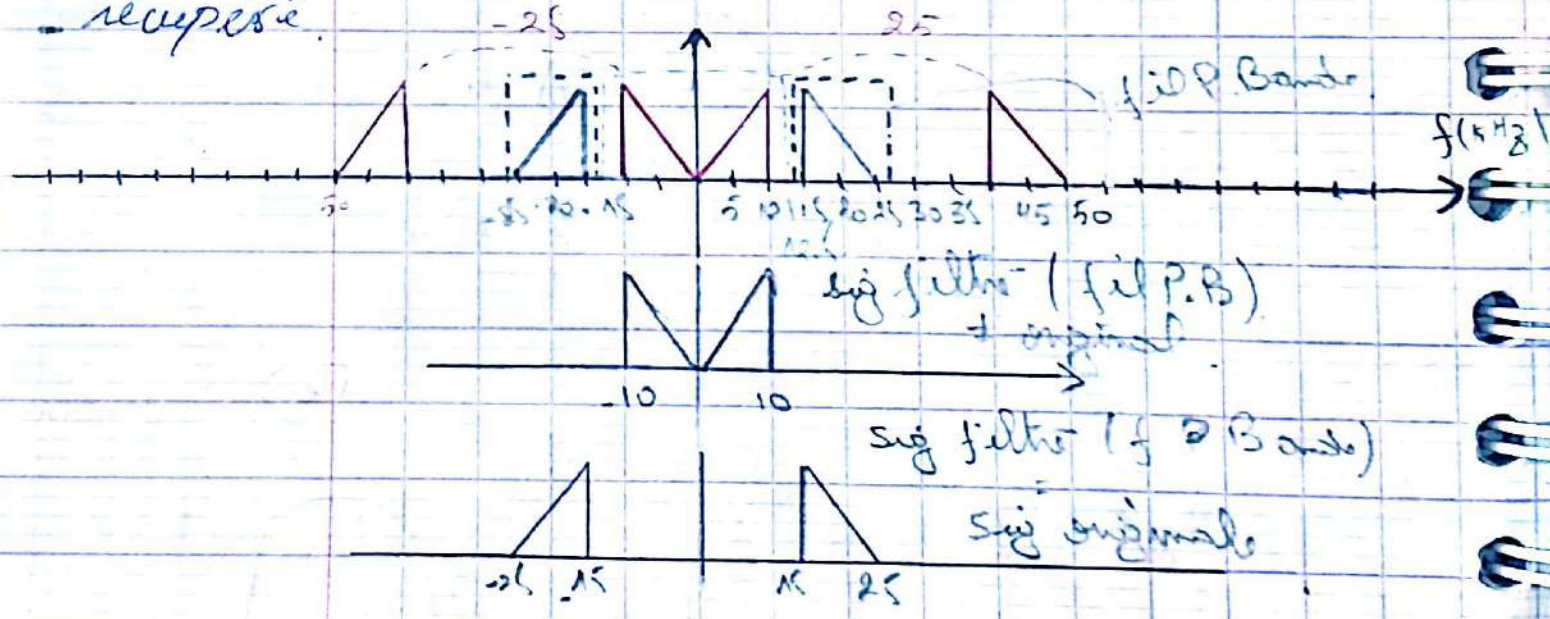 - récupéré.
-25 25
fil P. Bande
f(kHz)
50 -25 -20 -15 5 10 15 20 25 30 35 45 50
12.5
sig filtré (fil P.B)
≠ original
-10 10
sig filtré (f P Bande)
=
sig originale
-25 -15 15 25